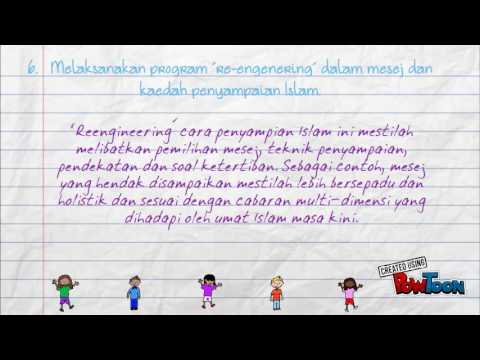 6. Melaksanakan program "re-engenering" dalam mesej dan
kaedah penyampaian Islam.
"Reengineering" cara penyampian Islam ini mestilah
melibatkan pemilihan mesej, teknik penyampaian,
pendekatan dan soal ketertiban. Sebagai contoh, mesej
yang hendak disampaikan mestilah lebih bersepadu dan
holistik dan sesuai dengan cabaran multi-dimensi yang
dihadapi oleh umat Islam masa kini.
CREATED USING
POWTOON